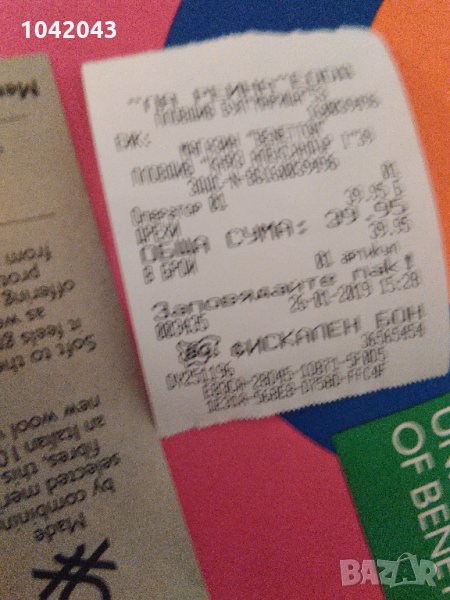 1042043
"ЛА РЕИНА" ЕООД
ПЛОВДИВ БУЛ."МАРИЦА"
160059496
ЕИК:
МАГАЗИН "BENETTON"
ПЛОВДИВ "КНЯЗ АЛЕКСАНДЪР I"39
ЗДДС-N BG160059496
Оператор 01 01
ДРЕХИ 39.95 Б
ОБЩА СУМА: 39.95
В БРОЙ 39.95
01 артикул
Заповядайте пак!
003435 26-01-2019 15:28
ФИСКАЛЕН БОН
DY251196 36565454
Made
by combining
selected
fibres, this
an Italian
new wool
Soft to the
it feels
as
offering
from
OF BENE
BAZAR